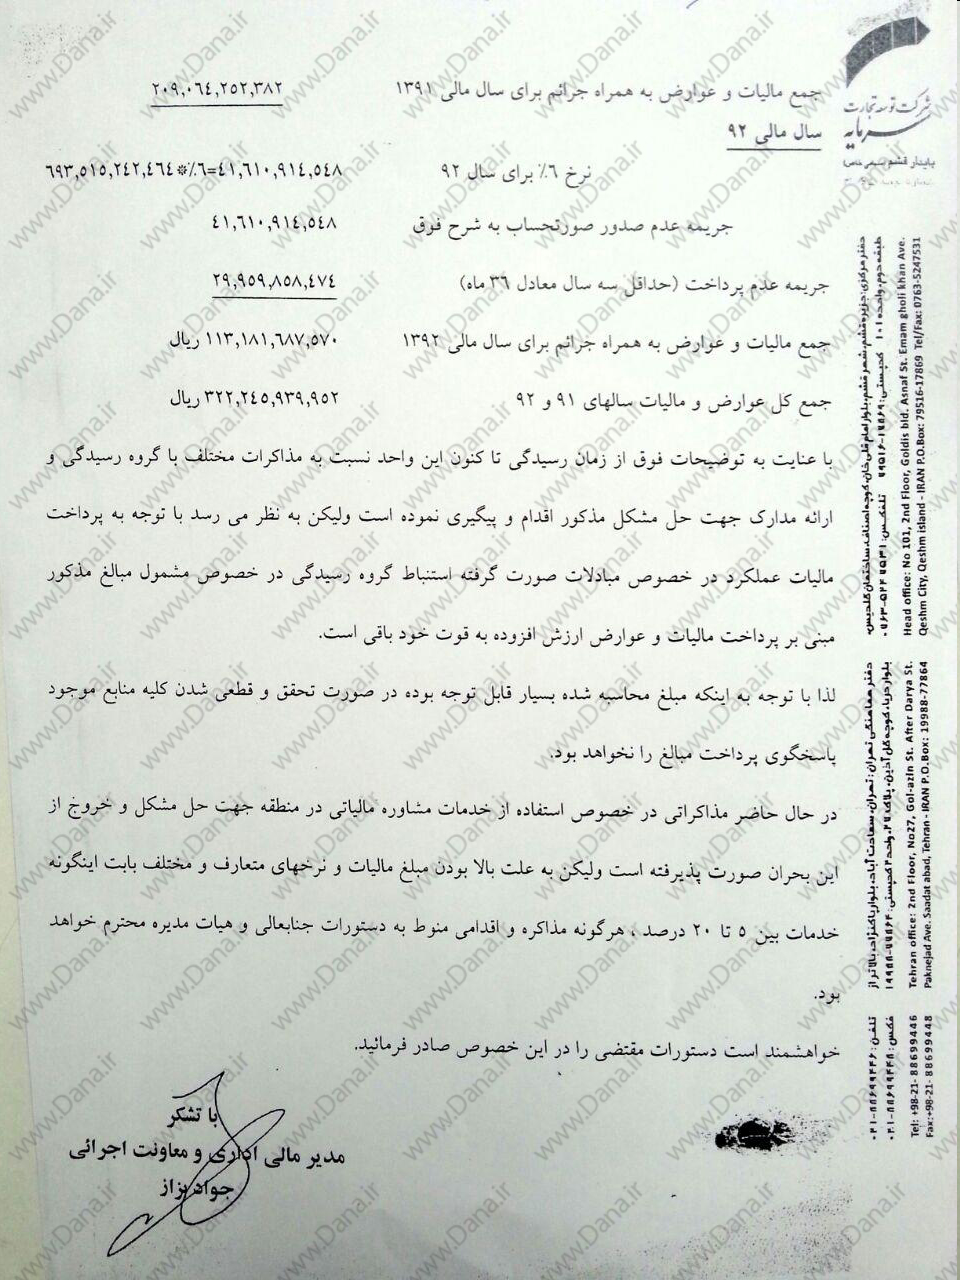 شرکت توسعه تجارت
سرمایه
پایدار قشم
جمع مالیات و عوارض به همراه جرائم برای سال مالی ۱۳۹۱ ۲۰۹,۰٦٤,۲٥۲,۳۸۲
سال مالی ۹۲
نرخ ٦٪ برای سال ۹۲ ٦۹۳,٥۱٥,۲٤۲,٤٦٤*٦٪=٤۱,٦۱۰,۹۱٤,٥٤۸
جریمه عدم صدور صورتحساب به شرح فوق ٤۱,٦۱۰,۹۱٤,٥٤۸
جریمه عدم پرداخت (حداقل سه سال معادل ۳٦ ماه) ۲۹,۹٥۹,۸٥۸,٤۷٤
جمع مالیات و عوارض به همراه جرائم برای سال مالی ۱۳۹۲ ۱۱۳,۱۸۱,٦۸۷,٥۷۰ ریال
جمع کل عوارض و مالیات سالهای ۹۱ و ۹۲ ۳۲۲,۲٤٥,۹۳۹,۹٥۲ ریال
با عنایت به توضیحات فوق از زمان رسیدگی تا کنون این واحد نسبت به مذاکرات مختلف با گروه رسیدگی و
ارائه مدارک جهت حل مشکل مذکور اقدام و پیگیری نموده است ولیکن به نظر می رسد با توجه به پرداخت
مالیات عملکرد در خصوص مبادلات صورت گرفته استنباط گروه رسیدگی در خصوص مشمول مبالغ مذکور
مبنی بر پرداخت مالیات و عوارض ارزش افزوده به قوت خود باقی است.
لذا با توجه به اینکه مبلغ محاسبه شده بسیار قابل توجه بوده در صورت تحقق و قطعی شدن کلیه منابع موجود
پاسخگوی پرداخت مبالغ را نخواهد بود.
در حال حاضر مذاکراتی در خصوص استفاده از خدمات مشاوره مالیاتی در منطقه جهت حل مشکل و خروج از
این بحران صورت پذیرفته است ولیکن به علت بالا بودن مبلغ مالیات و نرخهای متعارف و مختلف بابت اینگونه
خدمات بین ٥ تا ۲۰ درصد ، هرگونه مذاکره و اقدامی منوط به دستورات جنابعالی و هیات مدیره محترم خواهد
بود.
خواهشمند است دستورات مقتضی را در این خصوص صادر فرمائید.
با تشکر
مدیر مالی اداری و معاونت اجرائی
جواد بزاز
دفتر مرکزی: جزیره قشم، شهر قشم، بلوار امام قلی خان، کوچه اصناف، ساختمان گلدیس،
طبقه دوم، واحد ۱۰۱ کدپستی: ۱۷۸۶۹-۷۹۵۱۶ تلفکس: ۵۲۴۷۵۳۱-۰۷۶۳
Head office: No 101, 2nd Floor, Goldis bld. Asnaf St. Emam gholi khan Ave.
Qeshm City, Qeshm island - IRAN P.O.Box: 79516-17869 Tel/Fax: 0763-5247531
دفتر هماهنگی تهران: تهران، سعادت آباد، بلوار پاکنژاد، بالاتر از
بلوار دریا، کوچه گل آذین، پلاک ۲۷، واحد ۳ کدپستی: ۷۷۸۶۴-۱۹۹۸۸
Tehran office: 2nd Floor, No27, Gol-azin St. After Darya St.
Paknejad Ave. Saadat abad, Tehran - IRAN P.O.Box: 19988-77864
تلفن: ۸۸۶۹۹۴۴۶-۰۲۱
فکس: ۸۸۶۹۹۴۴۸-۰۲۱
Tel: +98-21- 88699446
Fax:+98-21- 88699448
www.Dana.ir